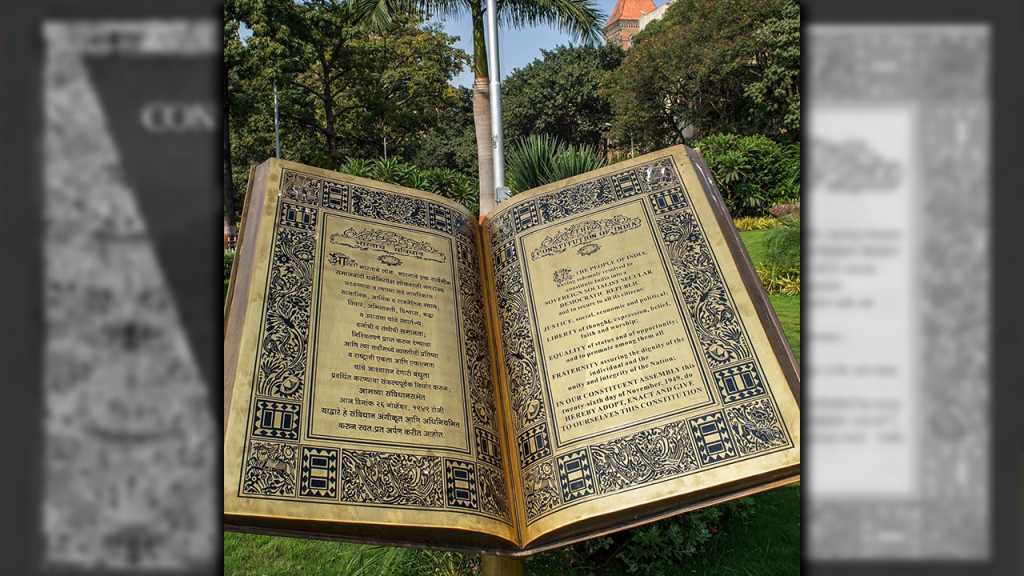 CON
भारताचे संविधान
आम्ही भारताचे लोक, भारताचे एक सार्वभौम
समाजवादी धर्मनिरपेक्ष लोकशाही गणराज्य
घडवण्याचा व त्याच्या सर्व नागरिकांस:
सामाजिक, आर्थिक व राजनैतिक न्याय;
विचार, अभिव्यक्ती, विश्वास, श्रद्धा
व उपासना यांचे स्वातंत्र्य;
दर्जाची व संधीची समानता;
निश्चितपणे प्राप्त करून देण्याचा
आणि त्या सर्वांमध्ये व्यक्तीची प्रतिष्ठा
व राष्ट्राची एकता आणि एकात्मता
यांचे आश्वासन देणारी बंधुता
प्रवर्धित करण्याचा संकल्पपूर्वक निर्धार करून,
आमच्या संविधानसभेत
आज दिनांक २६ नोव्हेंबर, १९४९ रोजी
याद्वारे हे संविधान अंगीकृत आणि अधिनियमित
करून स्वतःप्रत अर्पण करीत आहोत.
CONSTITUTION OF INDIA
WE, THE PEOPLE OF INDIA,
having solemnly resolved to
constitute India into a
SOVEREIGN SOCIALIST SECULAR
DEMOCRATIC REPUBLIC
and to secure to all its citizens:
JUSTICE, social, economic and political;
LIBERTY of thought, expression, belief,
faith and worship;
EQUALITY of status and of opportunity;
and to promote among them all
FRATERNITY assuring the dignity of the
individual and the
unity and integrity of the Nation;
IN OUR CONSTITUENT ASSEMBLY this
twenty-sixth day of November, 1949, do
HEREBY ADOPT, ENACT AND GIVE
TO OURSELVES THIS CONSTITUTION